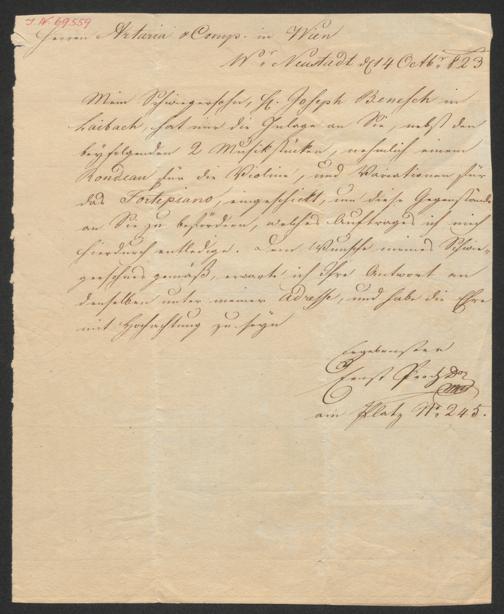 I. N. 69559
Herren Artaria & Comp. in Wien
Wr Neustadt d 14 Octbr 823
Mein Schwiegersohn, H. Joseph Benesch in
Laibach, hat mir die Inlage an Sie, nebst den
beyfolgenden 2 Musikstücken, nehmlich einem
Rondeau für die Violine, und Variationen für
das Fortepiano, eingeschickt, um diese Gegenstände
an Sie zu befördern, welches Auftrages ich mich
hierdurch entledige. Dem Wunsche meines Schwie-
gersohnes gemäß, erwarte ich ihre Antwort an
denselben unter meiner Adresse, und habe die Ehre
mit Hochachtung zu seyn
Ergebenster
Ernst
am Platz No 245.